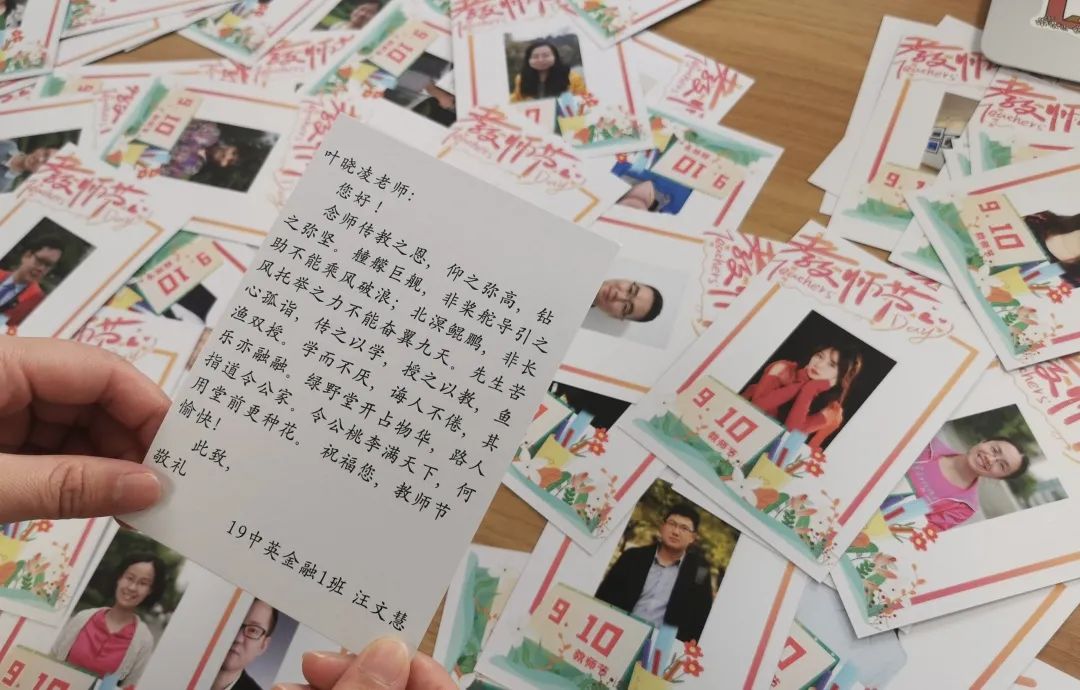 叶晓凌老师:
您好!
念师传教之恩,仰之弥高,钻
之弥坚。艟艨巨舰,非桨舵导引之
助不能乘风破浪;北溟鲲鹏,非长
风托举之力不能奋翼九天。先生苦
心孤诣,传之以学,授之以教,鱼
渔双授。学而不厌,诲人不倦,其
乐亦融融。绿野堂开占物华,路人
指道令公家。令公桃李满天下,何
用堂前更种花。祝福您,教师节
愉快!
此致,
敬礼
19中英金融1班 汪文慧
教师节
Teachers
教师节
Teachers
教师节
Teachers
Day
9.10
教师节
9.10
教师节
9.10
教师节
9.10
9.10
9.10
9.10
教师节
教师节
教师节